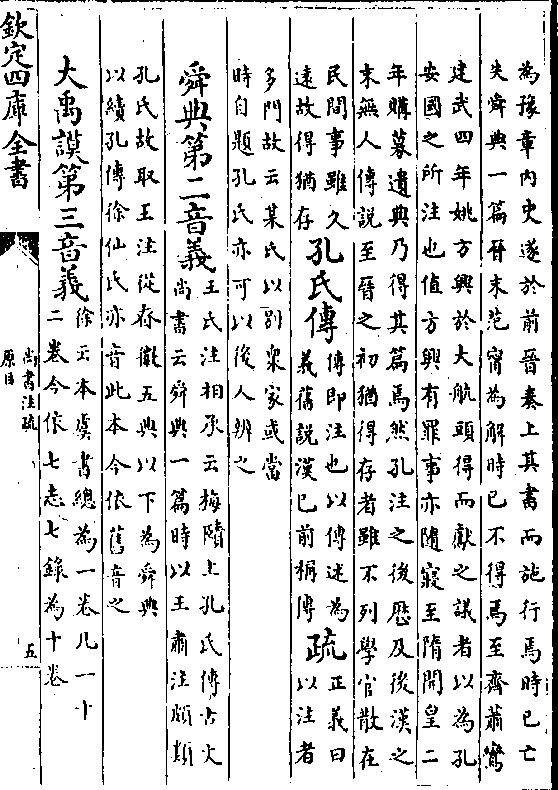 為豫章内史遂於前晉奏上其書而施行焉時已亡
失舜典一篇晉末范甯為解時已不得焉至齊蕭鸞
建武四年姚方興於大航頭得而獻之議者以為孔
安國之所注也值方興有罪事亦隨寢至隋開皇二
年購募遺典乃得其篇焉然孔注之後歷及後漢之
末無人傳說至晉之初猶得存者雖不列學官散在
民間事雖久
遠故得猶存
孔氏傳
傳即注也以傳述為
義舊說漢已前稱傳
疏
正義曰
以注者
多門故云某氏以別衆家或當
時自題孔氏亦可以後人辨之
舜典第二音義
王氏注相承云梅賾上孔氏傳古文
尚書云舜典一篇時以王肅注頗類
孔氏故取王注從春徽五典以下為舜典
以續孔傳徐仙氏亦音此本今依舊音之
大禹謨第三音義
徐云本虞書總為一卷凡一十
二卷今依七志七錄為十卷
欽定四庫全書
尚書注疏
原目
五